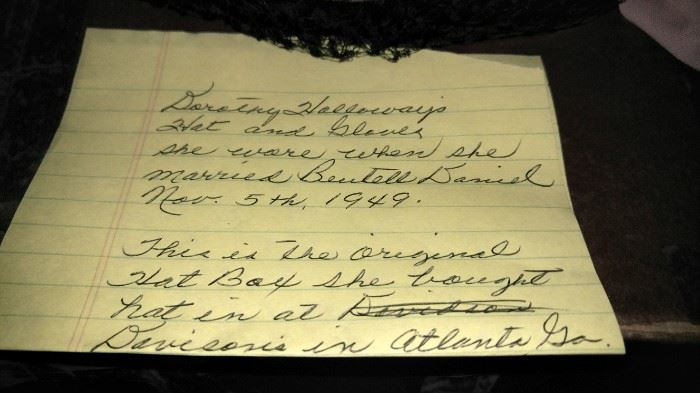 Dorothy Holloway's
Hat and Gloves
she wore when she
married Bentell Daniel
Nov. 5th, 1949.
This is the original
Hat Box she bought
hat in at Davidson
Davison's in Atlanta, Ga.